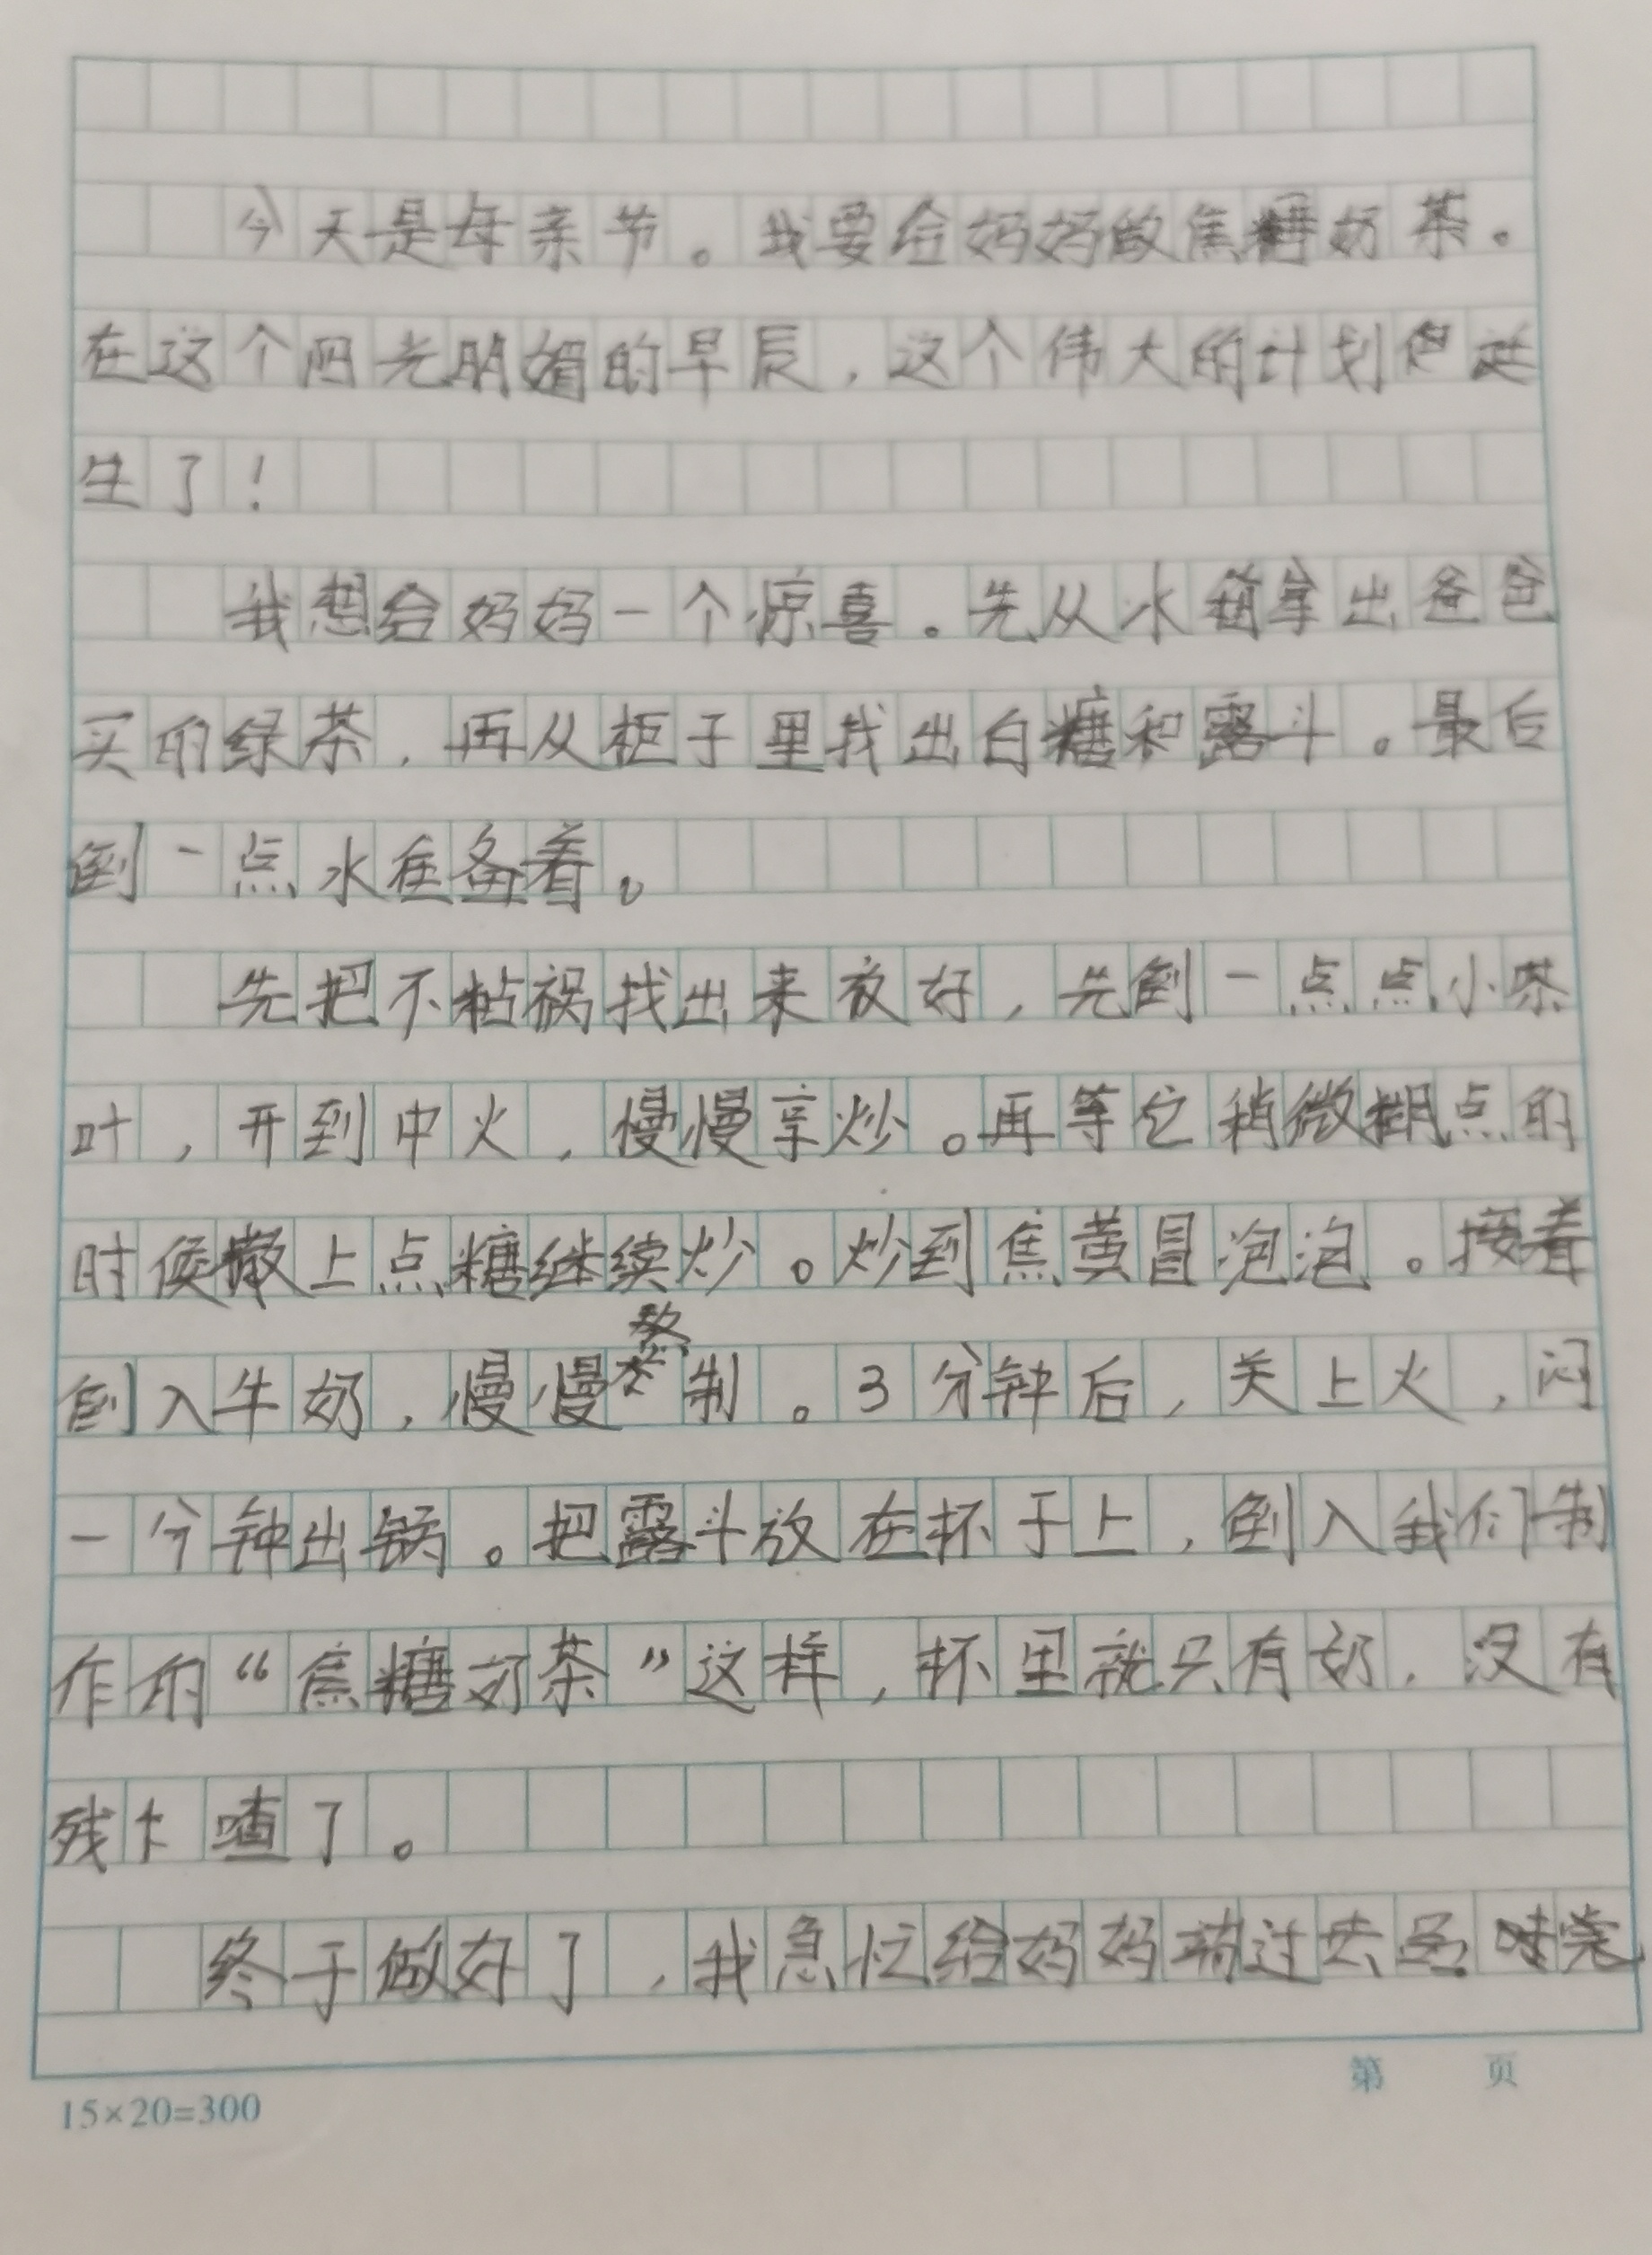 今天是母亲节。我要给妈妈做焦糖奶茶。
在这个阳光明媚的早辰，这个伟大的计划便诞
生了！
我想给妈妈一个惊喜。先从冰箱拿出爸爸
买的绿茶，再从柜子里找出白糖和露斗。最后
倒一点水在备着。
先把不粘祸找出来放好，先倒一点点小茶
叶，开到中火，慢慢享炒。再等它稍微糊点的
时候撒上点糖继续炒。炒到焦黄冒泡泡。接着
熬
倒入牛奶，慢慢制。3分钟后，关上火，闷
一分钟出锅。把露斗放在杯子上，倒入我们制
作的“焦糖奶茶”这样，杯里就只有奶，没有
残喳了。
终于做好了，我急忙给妈妈端过去品尝
15×20=300
第 页